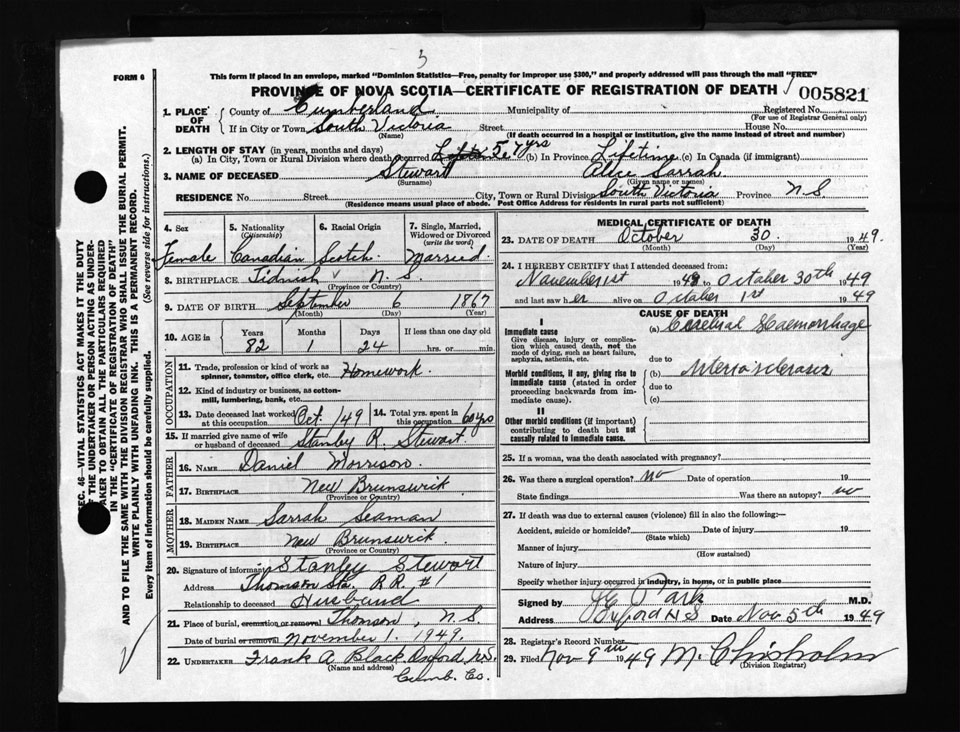 3
This form if placed in an envelope, marked "Dominion Statistics—Free, penalty for improper use $300," and properly addressed will pass through the mail "FREE"
FORM 6
PROVINCE OF NOVA SCOTIA—CERTIFICATE OF REGISTRATION OF DEATH
005821
SEC. 46—VITAL STATISTICS ACT MAKES IT THE DUTY
OF THE UNDERTAKER OR PERSON ACTING AS UNDER-
TAKER TO OBTAIN ALL THE PARTICULARS REQUIRED
IN THE "CERTIFICATE OF REGISTRATION OF DEATH"
AND TO FILE THE SAME WITH THE DIVISION REGISTRAR WHO SHALL ISSUE THE BURIAL PERMIT.
WRITE PLAINLY WITH UNFADING INK. THIS IS A PERMANENT RECORD.
Every item of information should be carefully supplied. (See reverse side for instructions.)
1. PLACE OF DEATH
County of Cumberland Municipality of Registered No.
(For use of Registrar General only)
If in City or Town South Victoria Street House No.
(Name) (If death occurred in a hospital or institution, give the name instead of street and number)
2. LENGTH OF STAY (in years, months and days)
(a) In City, Town or Rural Division where death occurred 57 yrs (b) In Province Lifetime (c) In Canada (if immigrant)
3. NAME OF DECEASED Stewart Alice Sarrah
(Surname) (Given name or names)
RESIDENCE No. Street City, Town or Rural Division South Victoria Province N.S.
(Residence means usual place of abode. Post Office Address for residents in rural parts not sufficient)
4. Sex Female
5. Nationality (Citizenship) Canadian
6. Racial Origin Scotch
7. Single, Married, Widowed or Divorced (write the word) Marreid
8. BIRTHPLACE Tidnish N.S.
(Province or Country)
9. DATE OF BIRTH September 6 1867
(Month) (Day) (Year)
10. AGE in Years 82 Months 1 Days 24 If less than one day old hrs. or min.
OCCUPATION
11. Trade, profession or kind of work as spinner, teamster, office clerk, etc. Homework
12. Kind of industry or business, as cotton-mill, lumbering, bank, etc.
13. Date deceased last worked at this occupation Oct /49
14. Total yrs. spent in this occupation 60 yrs
15. If married give name of wife or husband of deceased Stanley R. Stewart.
FATHER
16. NAME Daniel Morrison.
17. BIRTHPLACE New Brunswick
(Province or Country)
MOTHER
18. MAIDEN NAME Sarrah Seaman
19. BIRTHPLACE New Brunswick.
(Province or Country)
20. Signature of informant Stanley Stewart
Address Thomson Sta. R.R. #1
Relationship to deceased Husband
21. Place of burial, cremation or removal Thomson, N.S.
Date of burial or removal November 1. 1949.
22. UNDERTAKER Frank A. Black, Oxford, N.S.
(Name and address)
Cumb. Co.
MEDICAL CERTIFICATE OF DEATH
23. DATE OF DEATH October 30. 1949.
(Month) (Day) (Year)
24. I HEREBY CERTIFY that I attended deceased from:
November 1st 1948 to October 30th 1949
and last saw her alive on October 1st 1949
CAUSE OF DEATH
I
Immediate cause
Give disease, injury or complication which caused death, not the mode of dying, such as heart failure, asphyxia, asthenia, etc.
(a) Cerebral Haemorrhage
due to
Morbid conditions, if any, giving rise to immediate cause (stated in order proceeding backwards from immediate cause).
(b) Arteriosclerosis
due to
(c)
II
Other morbid conditions (if important) contributing to death but not causally related to immediate cause.
25. If a woman, was the death associated with pregnancy?
26. Was there a surgical operation? no Date of operation 19
State findings Was there an autopsy? no
27. If death was due to external causes (violence) fill in also the following:—
Accident, suicide or homicide? Date of injury 19
(State which)
Manner of injury
(How sustained)
Nature of injury
Specify whether injury occurred in industry, in home, or in public place
Signed by Park M.D.
Address Oxford N S Date Nov 5th 1949
28. Registrar's Record Number
29. Filed Nov 9th 1949 M. Chisholm
(Division Registrar)